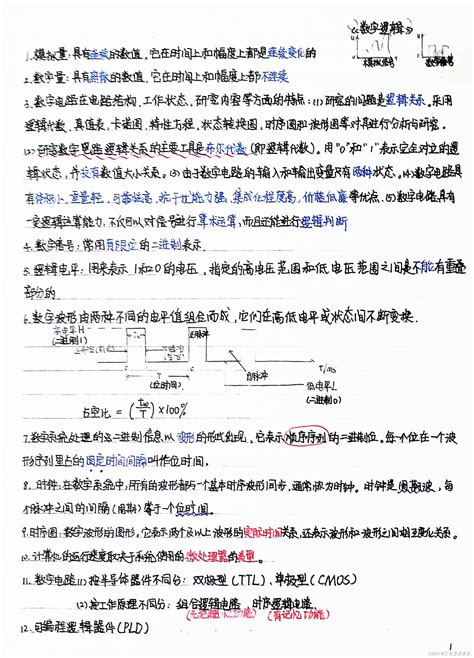 《数字逻辑》
模拟信号 数字信号
1.模拟量:具有连续的数值,它在时间上和幅度上都是连续变化的
2.数字量:具有离散的数值,它在时间上和幅度上都不连续
3.数字电路在电路结构、工作状态、研究内容等方面的特点:(1)研究的问题是逻辑关系。采用
逻辑代数、真值表、卡诺图、特性方程、状态转换图、时序图和波形图等对其进行分析与研究。
(2)研究数字电路逻辑关系的主要工具是布尔代数(即逻辑代数)。用"0"和"1"表示完全对立的逻
辑状态,并没有数值大小关系。(3)由于数字电路的输入和输出变量只有两种状态。(4)数字电路具
有体积小、重量轻、可靠性高、抗干扰能力强、集成化程度高、价格低廉等优点。(5)数字电路具有
一定逻辑运算能力,不仅可以对信号进行算术运算,而且还能进行逻辑判断
4.数字信号:常用有限位的二进制表示.
5.逻辑电平:用来表示1和0的电压,指定的高电压范围和低电压范围之间是不能有重叠
部分的.
6.数字波形由两种不同的电平值组合而成,它们在高低电平或状态间不断变换.
高电平H
(二进制1)
正脉冲
负脉冲
T
(位时间)
t/ms
低电平L
(二进制0)
占空比 = (tw/T) × 100%
7.数字系统处理的二进制信息以波形的形式出现,它表示顺序序列的二进制位。每一个位在一个波
形序列里占的固定时间间隔叫作位时间。
8.时钟:在数字系统中,所有的波形都与一个基本时序波形同步,通常称为时钟。时钟是周期波,每
个脉冲之间的间隔(周期)等于一个位时间。
9.时序图:数字波形的图形。它表示两个及以上波形的实际时间关系,还表示波形和波形之间相互变化关系。
10.计算机的运行速度取决于系统使用的微处理器的类型。
11.数字电路 (1)按半导体器件不同分:双极型(TTL)、单极型(CMOS)
(2)按工作原理不同分:组合逻辑电路 时序逻辑电路
(无记忆功能) (有记忆功能)
12.可编程逻辑器件(PLD)
1